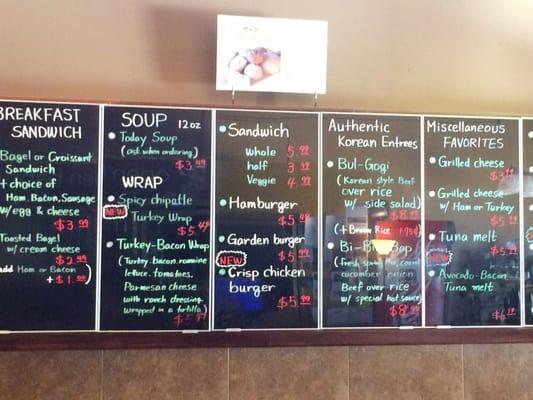 BREAKFAST
SANDWICH
Bagel or Croissant
Sandwich
+ choice of
Ham, Bacon, Sausage
w/egg & cheese
$3.99
Toasted Bagel
w/ cream cheese
$2.49
add Ham or Bacon
+ $1.
SOUP 12oz
Today Soup
(ask when ordering)
$3.49
WRAP
Spicy chipotle
NEW
Turkey Wrap
$5.49
Turkey-Bacon Wrap
(Turkey, bacon, romaine
lettuce, tomatoes,
Parmesan cheese
with ranch dressing
wrapped in a tortilla)
Sandwich
Whole 5.99
half 3.99
Veggie 4.99
Hamburger
$5.
Garden burger
$5.99
NEW
Crisp chicken
burger
$5.99
Authentic
Korean Entrees
Bul-Gogi
(Korean style Beef
over rice
w/ side salad)
$8.99
(+ Brown Rice
Bi-Bim-Bap
(fresh
cucumber onion
Beef over rice
w/ special hot sauce)
$8.99
Miscellaneous
FAVORITES
Grilled cheese
Grilled cheese
w/ Ham or Turkey
Tuna melt
NEW
Avocado-Bacon
Tuna melt